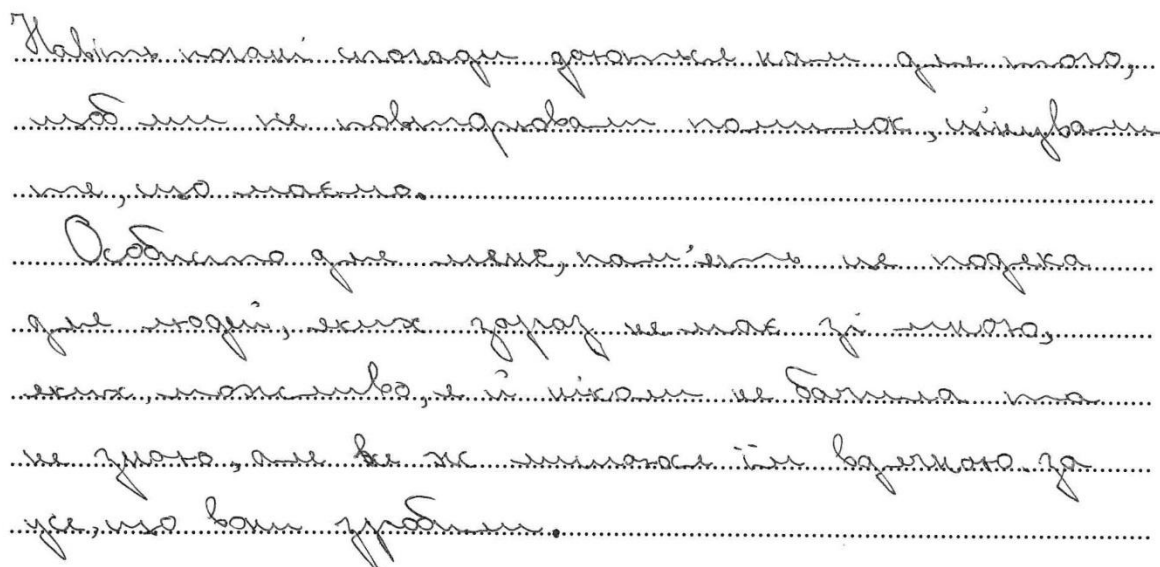 Навіть погані спогади даються нам для того,
щоб ми не повторювали помилок, цінували
те, що маємо.
Особисто для мене, пам'ять це подяка
для людей, яких зараз немає зі мною,
яких, можливо, я й ніколи не бачила та
не знаю, але все ж лишаюся їм вдячною за
усе, що вони зробили.